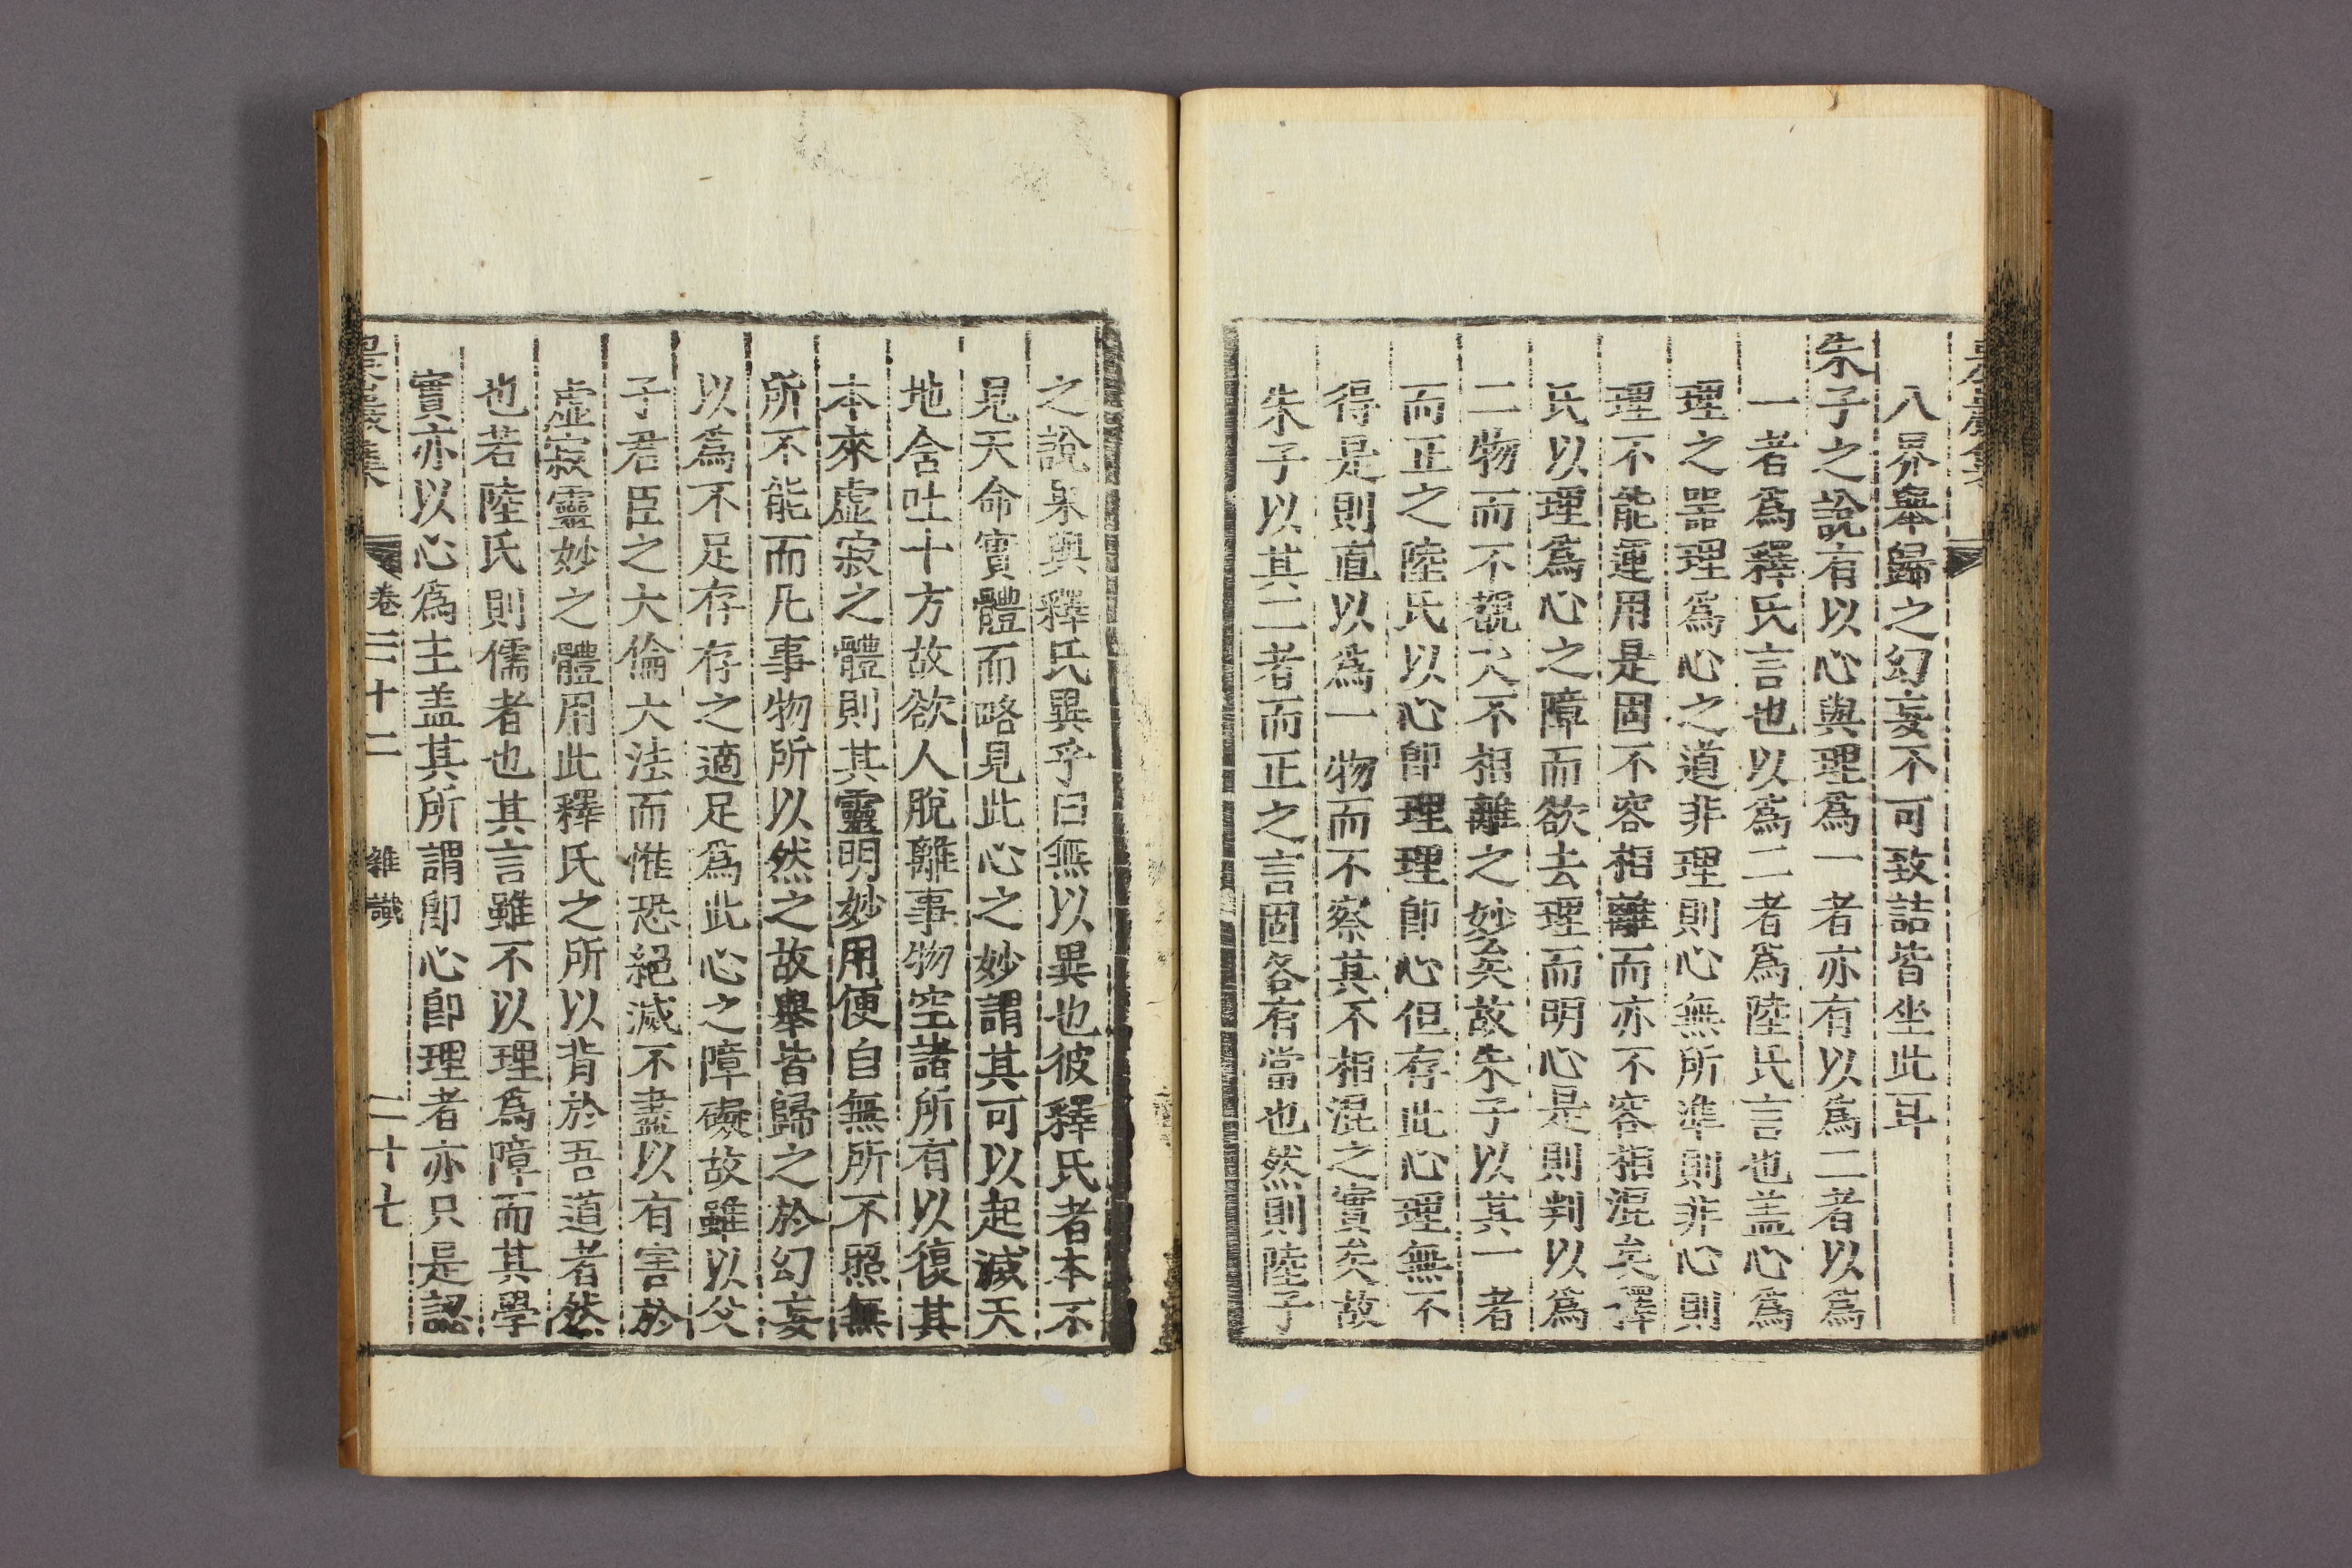 八界擧歸之幻妄不可致詰皆坐此耳
朱子之說有以心與理爲一者亦有以爲二者以爲
一者爲釋氏言也以爲二者爲陸氏言也盖心爲
理之器理爲心之道非理則心無所準則非心則
理不能運用是固不容相離而亦不容相混矣釋
氏以理爲心之障而欲去理而明心是則判以爲
二物而不觀不相離之妙矣故朱子以其一者
而正之陸氏以心卽理理卽心但存此心理無不
得是則直以爲一物而不察其不相混之實矣故
朱子以其二者而正之言固各有當也然則陸子
之說果與釋氏異乎曰無以異也彼釋氏者本不
見天命實體而略見此心之妙謂其可以起滅天
地舍吐十方故欲人脫離事物空諸所有以復其
本來虛寂之體則其靈明妙用便自無所不照無
所不能而凡事物所以然之故擧皆歸之於幻妄
以爲不足存存之適足爲此心之障礙故雖以父
子君臣之大倫大法而惟恐絕滅不盡以有害於
虛寂靈妙之體用此釋氏之所以背於吾道者然
也若陸氏則儒者也其言雖不以理爲障而其學
實亦以心爲主盖其所謂卽心卽理者亦只是認
卷三十二 雜識 二十七